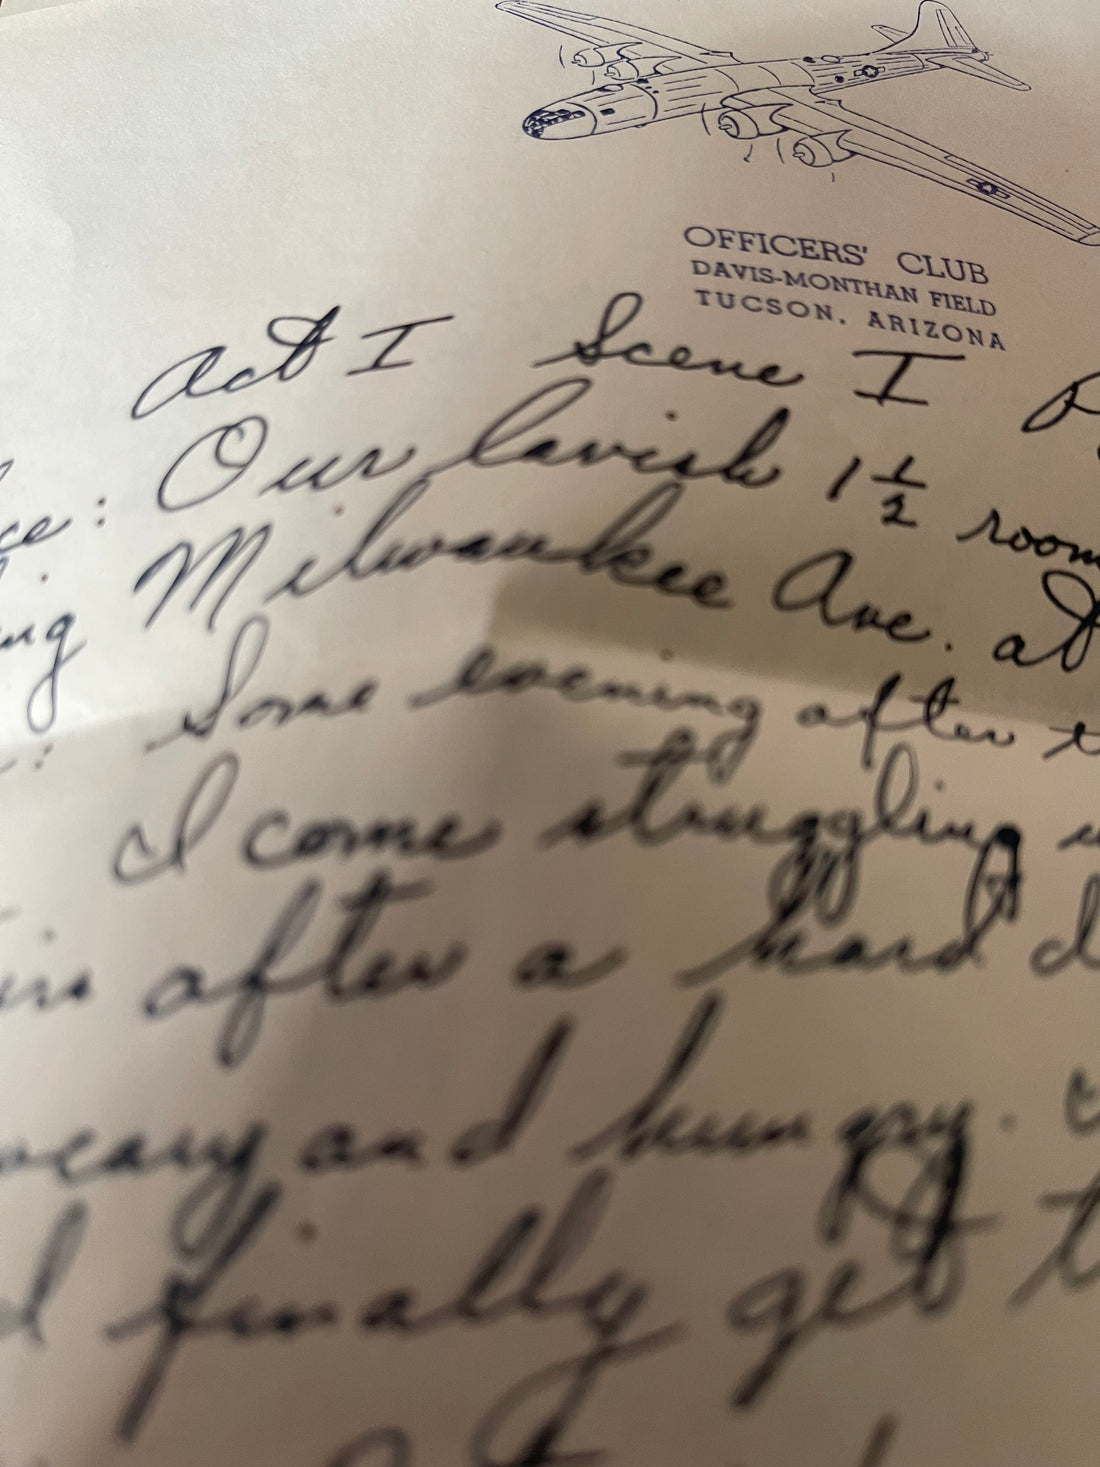 OFFICERS' CLUB
DAVIS-MONTHAN FIELD
TUCSON, ARIZONA
Act I Scene I
Our lavish 1 1/2 room
Milwaukee Ave. at
Some evening after
I come struggling
after a hard
weary and hungry.
finally get